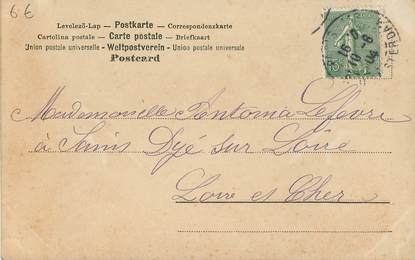 6 €
Levelező-Lap — Postkarte — Correspondenzkarte
Cartolina postale — Carte postale — Briefkaart
Union postale universelle — Weltpostverein — Union postale universelle
Postcard
15
04
Mademoiselle Antonia Lefevre
à Saint Dyé sur Loire
Loire et Cher